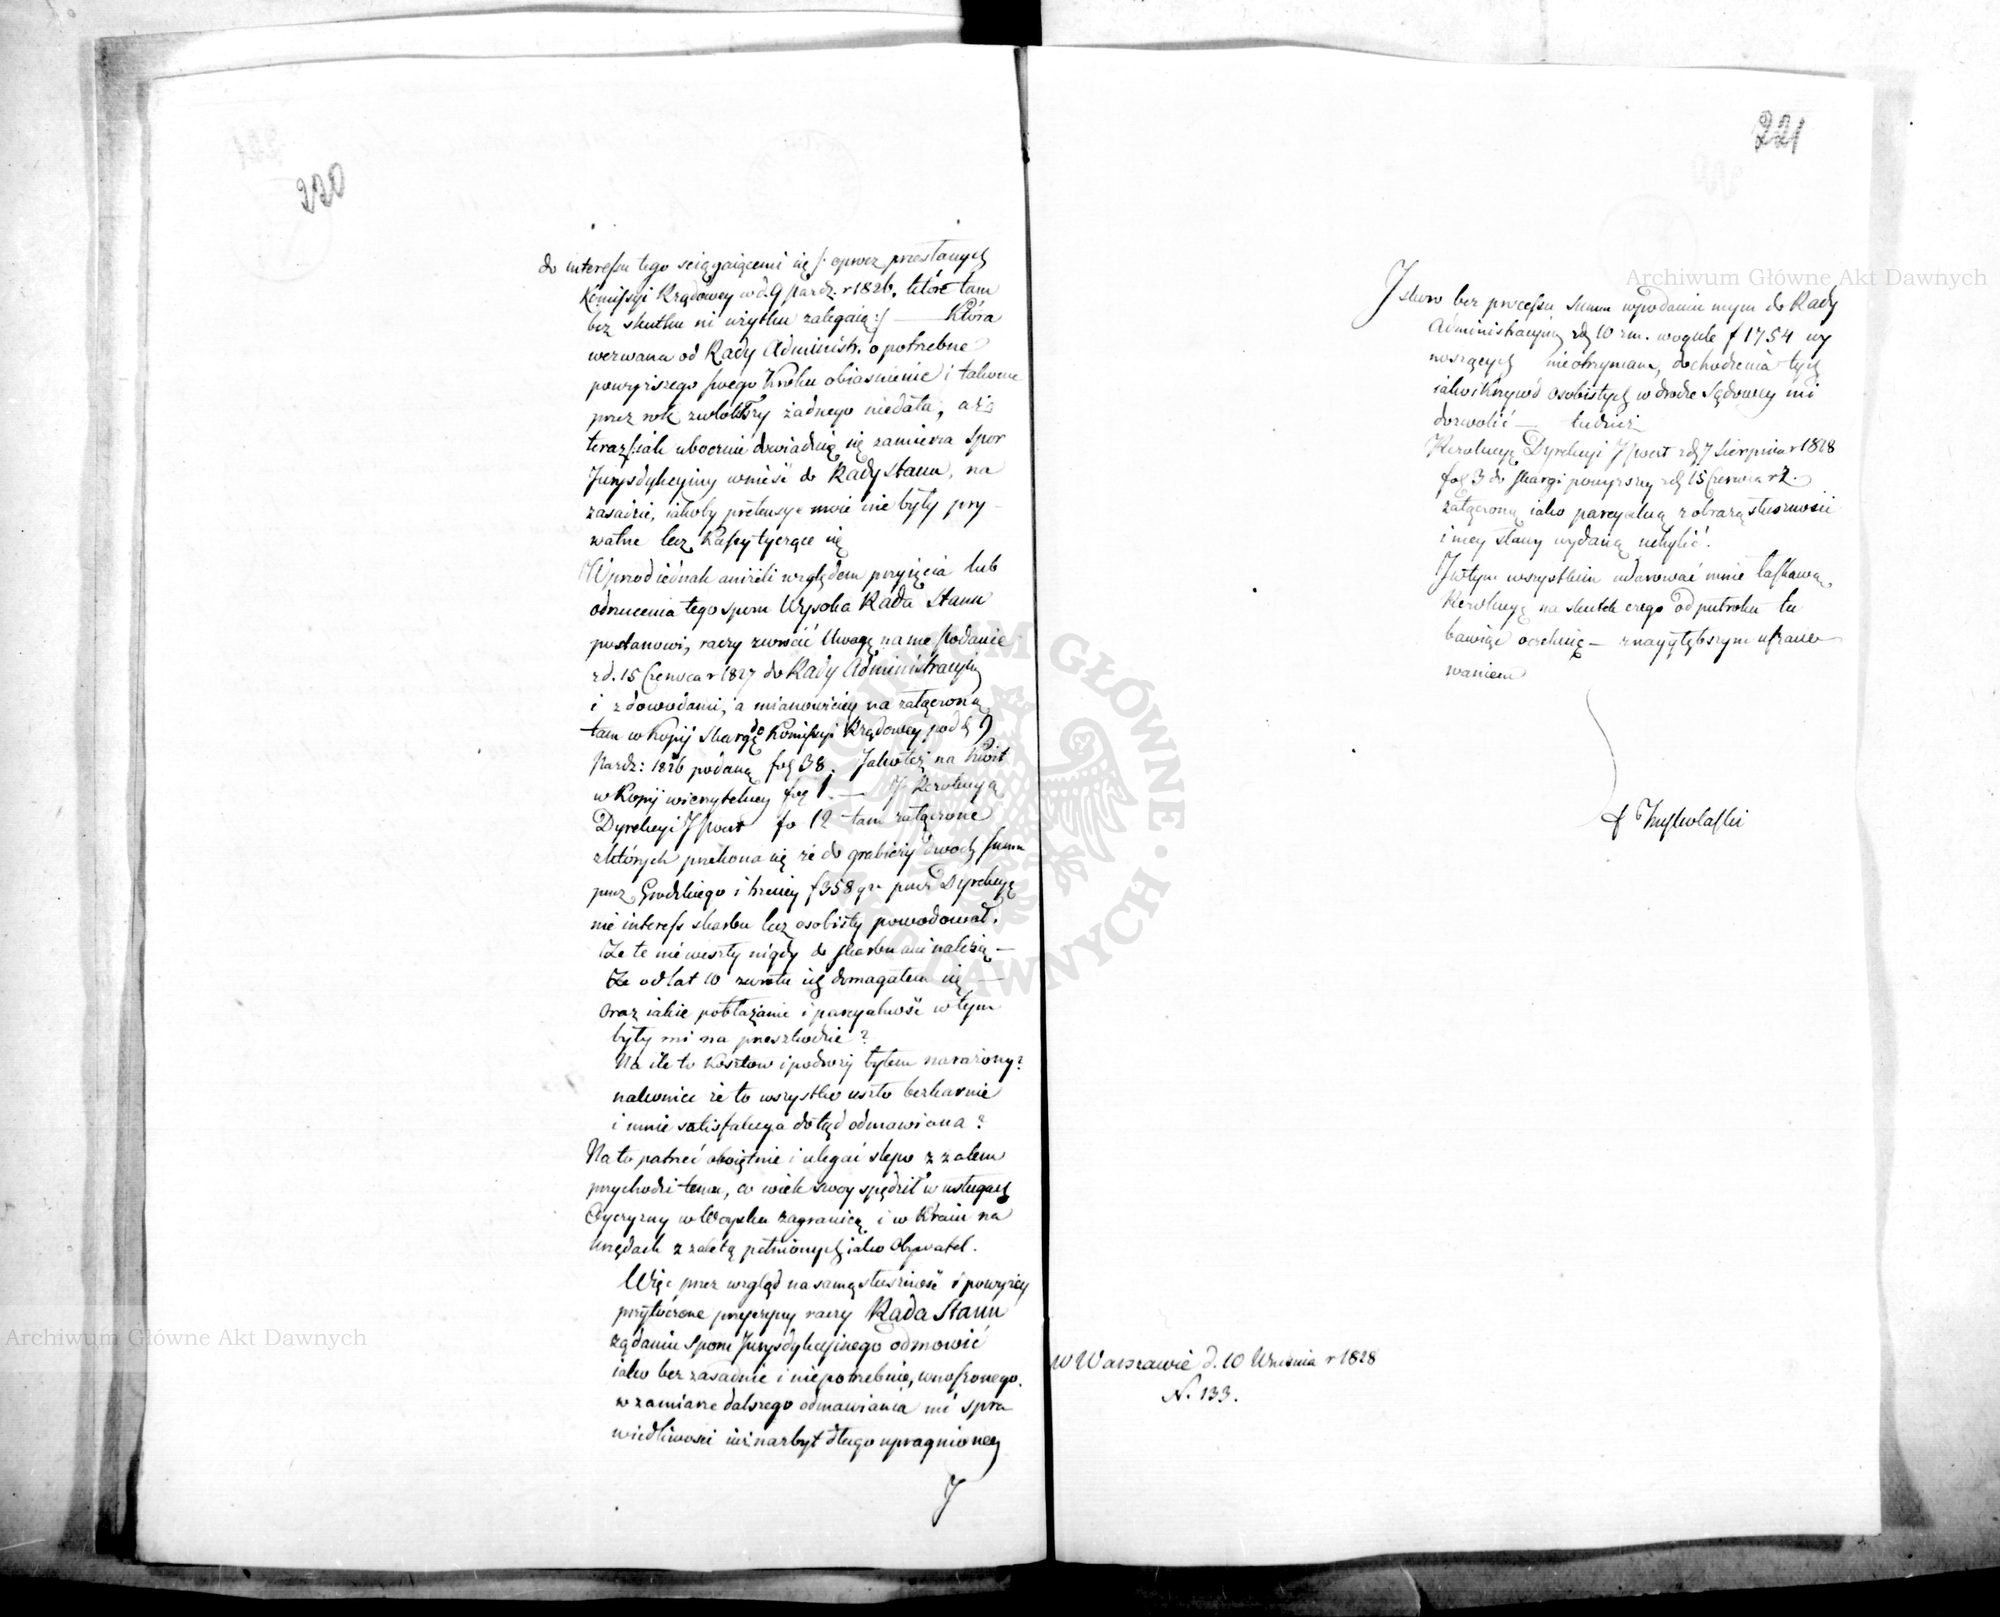 220
do interessu tego sciągaiącemi się /: oprocz przesłanych
Kommissyi Rządowey w d. 9 Pazdz. r 1826, które tam
bez skutku ni użytku zalegaią :/ — Która
wezwana od Rady Administr. o potrzebne
powyższego swego Kroku obiasnienie i takowe
przez rok zwlokłszy żadnego niedała, aż
teraz iak ubocznie dowiaduię się zamierza spor
Jurysdykcyiny wnieść do Rady Stanu, na
zasadzie, iakoby pretensye moie nie były pry-
watne lecz Kassy tyczące się
Wprzod iednak aniżeli względem przyięcia lub
odrzucenia tego sporu Wysoka Rada Stanu
postanowi, raczy zwrócić Uwagę na me podanie
z d. 15 Czerwca r 1827 do Rady Administracyiney
i z dowodami, a mianowiciey na załączoną
tam w Kopij skargę do Komissyi Rządowey pod d. 9
Pazdz: 1826 podaną fol 38. Jakoteż na Kwit
w Kopij wierzytelney fol 1. — I Rezolucyą
Dyrekcyi J fo 12 tam załączone
z których przekona się że do grabieży dwoch summ
przez Grodzkiego i trzeciey f 358 gr przez Dyrekcyę
nie interess skarbu lecz osobisty powodował.
Że te nie weszły nigdy do skarbu ani należą —
Że od lat 10 zwrotu ich domagałem się —
Oraz iakie pobłażanie i parcyalność w tym
były mi na przeszkodzie?
Na ile to Kosztow i podroży byłem narażony?
nakoniec że to wszystko uszło bezkarnie
i mnie satisfakcya dotąd odmawiana?
Na to patrzeć oboiętnie i ulegać slepo z żalem
przychodzi temu, co wiek swoy spędził w usługach
Oyczyzny w Woysku zagranicą i w Kraiu na
Urzędach z zaletą pełnionych iako Obywatel.
Więc przez wzgląd na samą słuszność i powyżey
przytoczone przyczyny raczy Rada Stanu
żądaniu Sporu Jurysdykcyinego odmowić
iako bezzasadnie i niepotrzebnie, wnoszonego.
w zamiarze dalszego odmawiania mi spra
wiedliwości iuż nazbyt długo upragnioney
I
221
I skoro bez processu Summ w podaniu mym do Rady
Administracyiney z d. 10 r m. wogule f 1754 wy
noszących nieotrzymam, dochodzenia tych
iako i Krzywd osobistych w drodze Sądowey mi
dozwolić — tudzież
Rezolucyę Dyrekcyi J z d. 7 Sierpnia r 1818
fol 3 do skargi powyższey z d. 15 Czerwca r z.
załączoną iako parcyalną z obrazą słuszności
i mey sławy wydaną uchylić.
I w tym wszystkim udarować mnie łaskawą
Rezolucyą na skutek czego od putroku tu
bawiąc oczekuię — z naygłębszym uszano
waniem
W Warszawie d. 10 Września r 1828
N. 133.
Archiwum Główne Akt Dawnych
Archiwum Główne Akt Dawnych
ARCHIWUM GŁÓWNE AKT DAWNYCH